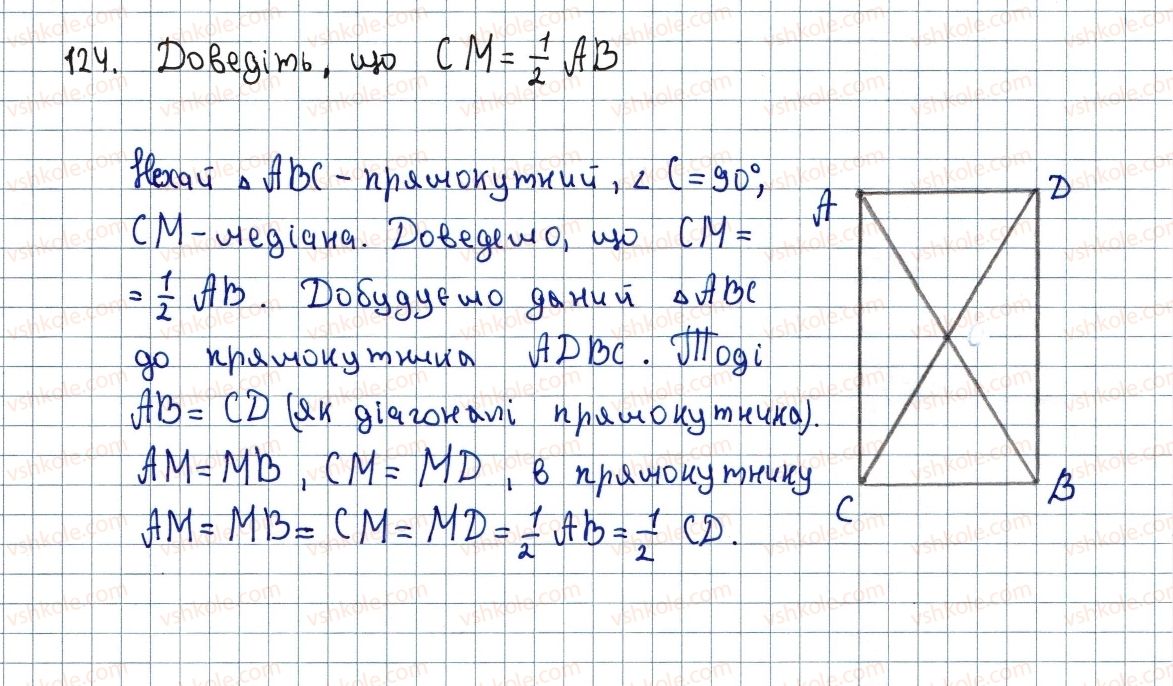 124. Доведіть, що CM = 1/2 AB
Нехай △ ABC - прямокутний, ∠ C = 90°,
CM - медіана. Доведемо, що CM =
= 1/2 AB. Добудуємо даний △ ABC
до прямокутника ADBC. Тоді
AB = CD (як діагоналі прямокутника).
AM = MB, CM = MD, в прямокутнику
AM = MB = CM = MD = 1/2 AB = 1/2 CD.
A D
C B
vshkole.com